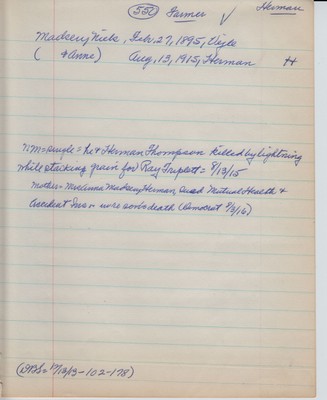 550 Farmer ✓ Herman
Madsen, Niels, Feb. 27, 1895, Vejle
( & Anne) Aug, 13, 1915, Herman H
n.m = single = he & Herman Thompson killed by lightning
while stacking grain for Ray Triplett = 8/13/15
Mother = Mrs Anna Madsen, Herman, sued Mutual Health &
Accident Ins. in sons death (Democrat 9/2/16)
13 - 102 - 178)